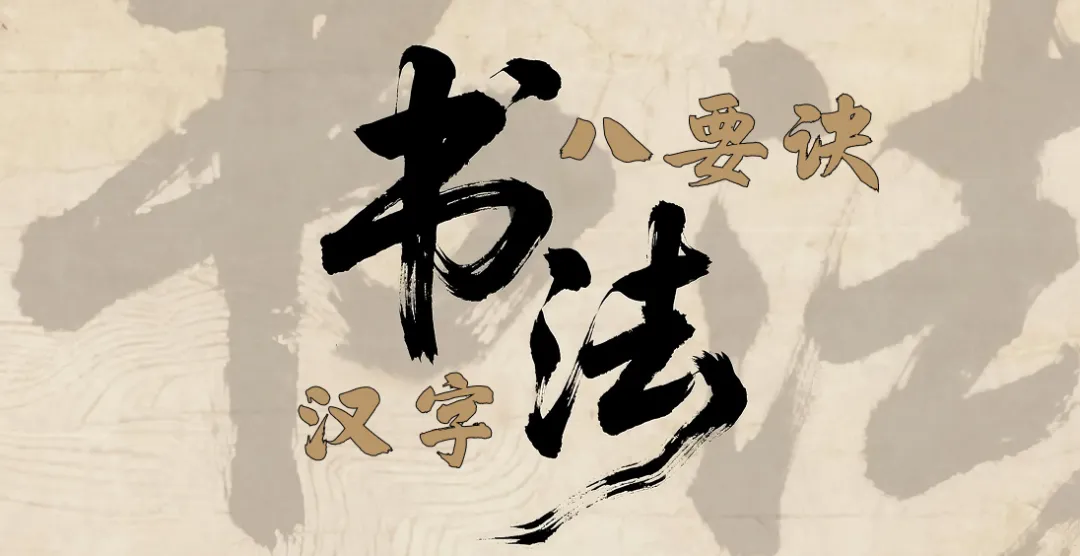 汉字
书法
八要诀